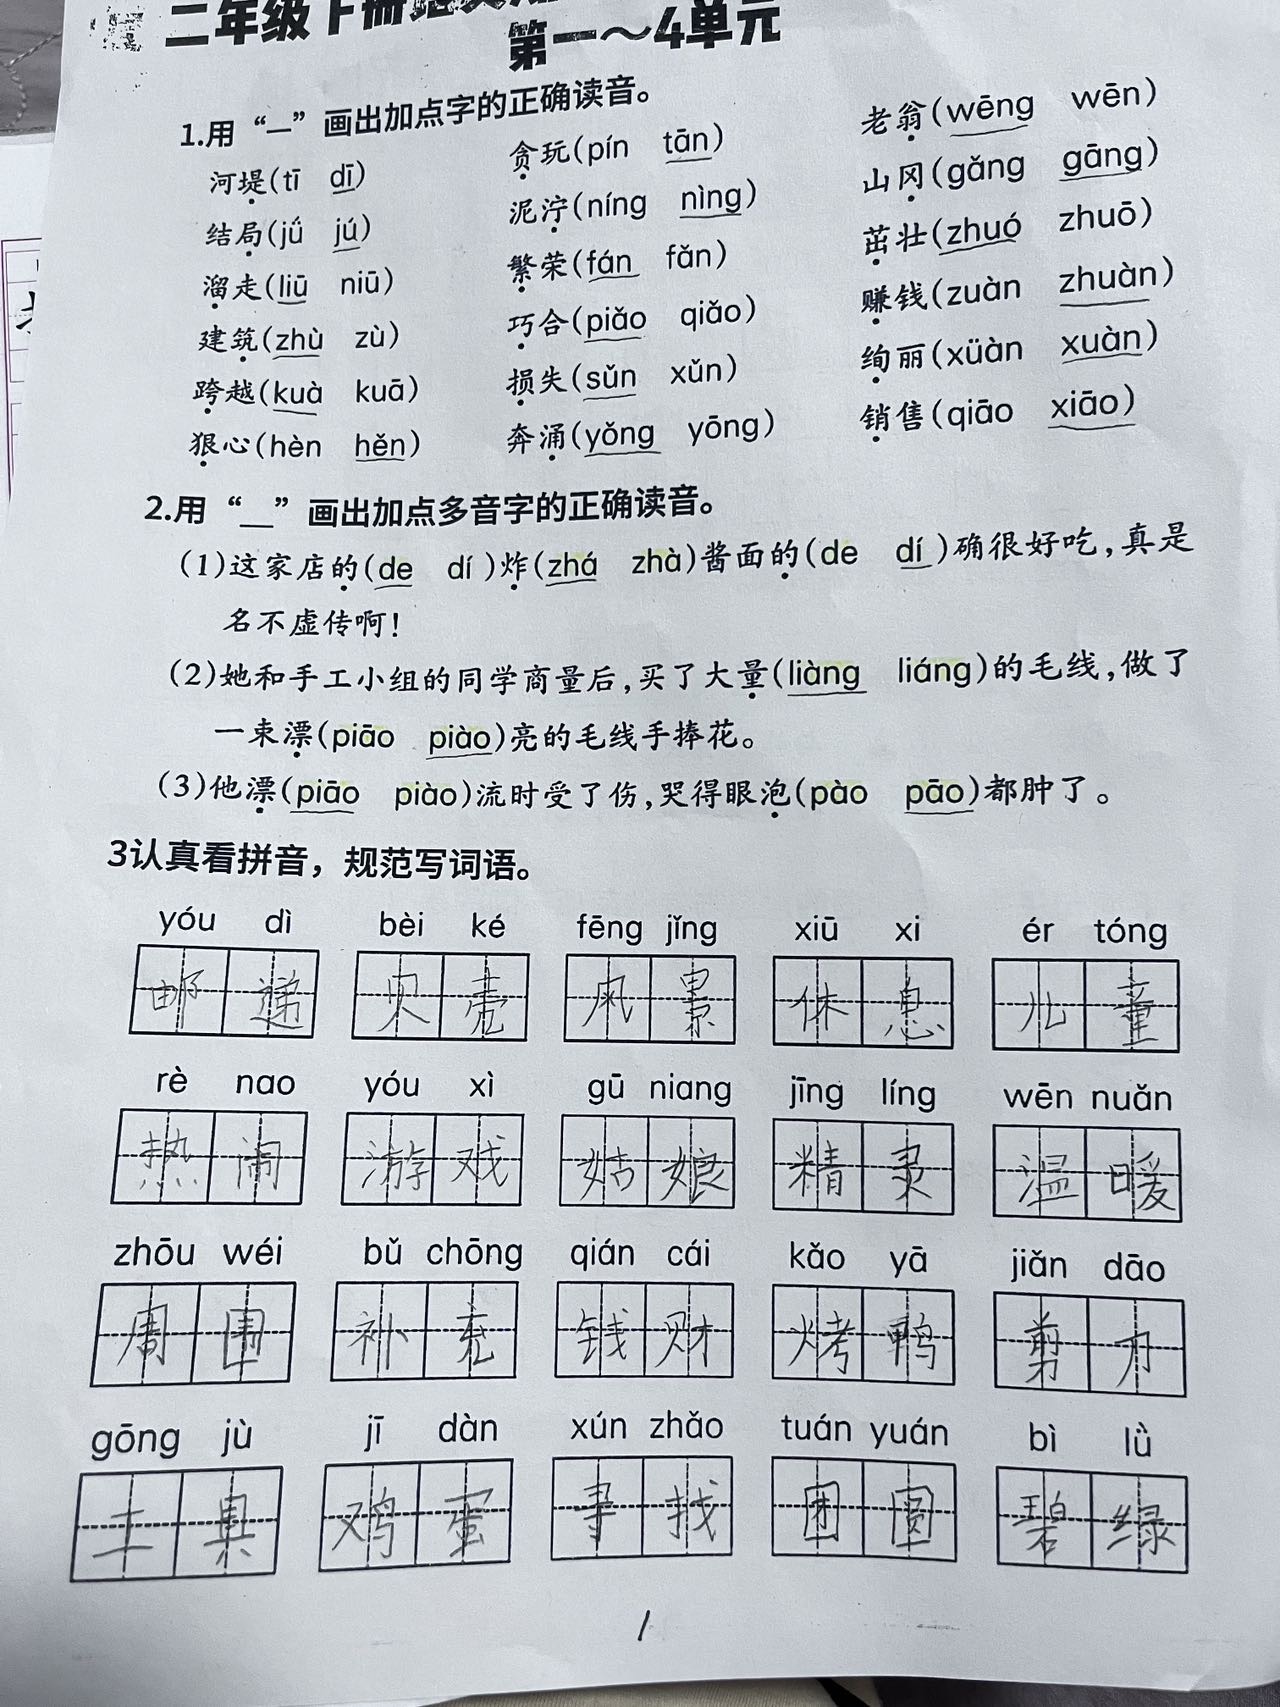 二年级下册
第一～4单元
1.用“—”画出加点字的正确读音。
河堤(tī dī) 贪玩(pín tān) 老翁(wēng wēn)
结局(jǘ jú) 泥泞(níng nìng) 山冈(gǎng gāng)
溜走(liū niū) 繁荣(fán fǎn) 茁壮(zhuó zhuō)
建筑(zhù zù) 巧合(piǎo qiǎo) 赚钱(zuàn zhuàn)
跨越(kuà kuā) 损失(sǔn xǔn) 绚丽(xüàn xuàn)
狠心(hèn hěn) 奔涌(yǒng yōng) 销售(qiāo xiāo)
2.用“__”画出加点多音字的正确读音。
(1)这家店的(de dí)炸(zhá zhà)酱面的(de dí)确很好吃,真是
名不虚传啊!
(2)她和手工小组的同学商量后,买了大量(liàng liáng)的毛线,做了
一束漂(piāo piào)亮的毛线手捧花。
(3)他漂(piāo piào)流时受了伤,哭得眼泡(pào pāo)都肿了。
3认真看拼音，规范写词语。
yóu dì bèi ké fēng jǐng xiū xi ér tóng
邮递 贝壳 风景 休息 儿童
rè nao yóu xì gū niang jīng líng wēn nuǎn
热闹 游戏 姑娘 精灵 温暖
zhōu wéi bǔ chōng qián cái kǎo yā jiǎn dāo
周围 补充 钱财 烤鸭 剪刀
gōng jù jī dàn xún zhǎo tuán yuán bì lǜ
工具 鸡蛋 寻找 团圆 碧绿
1